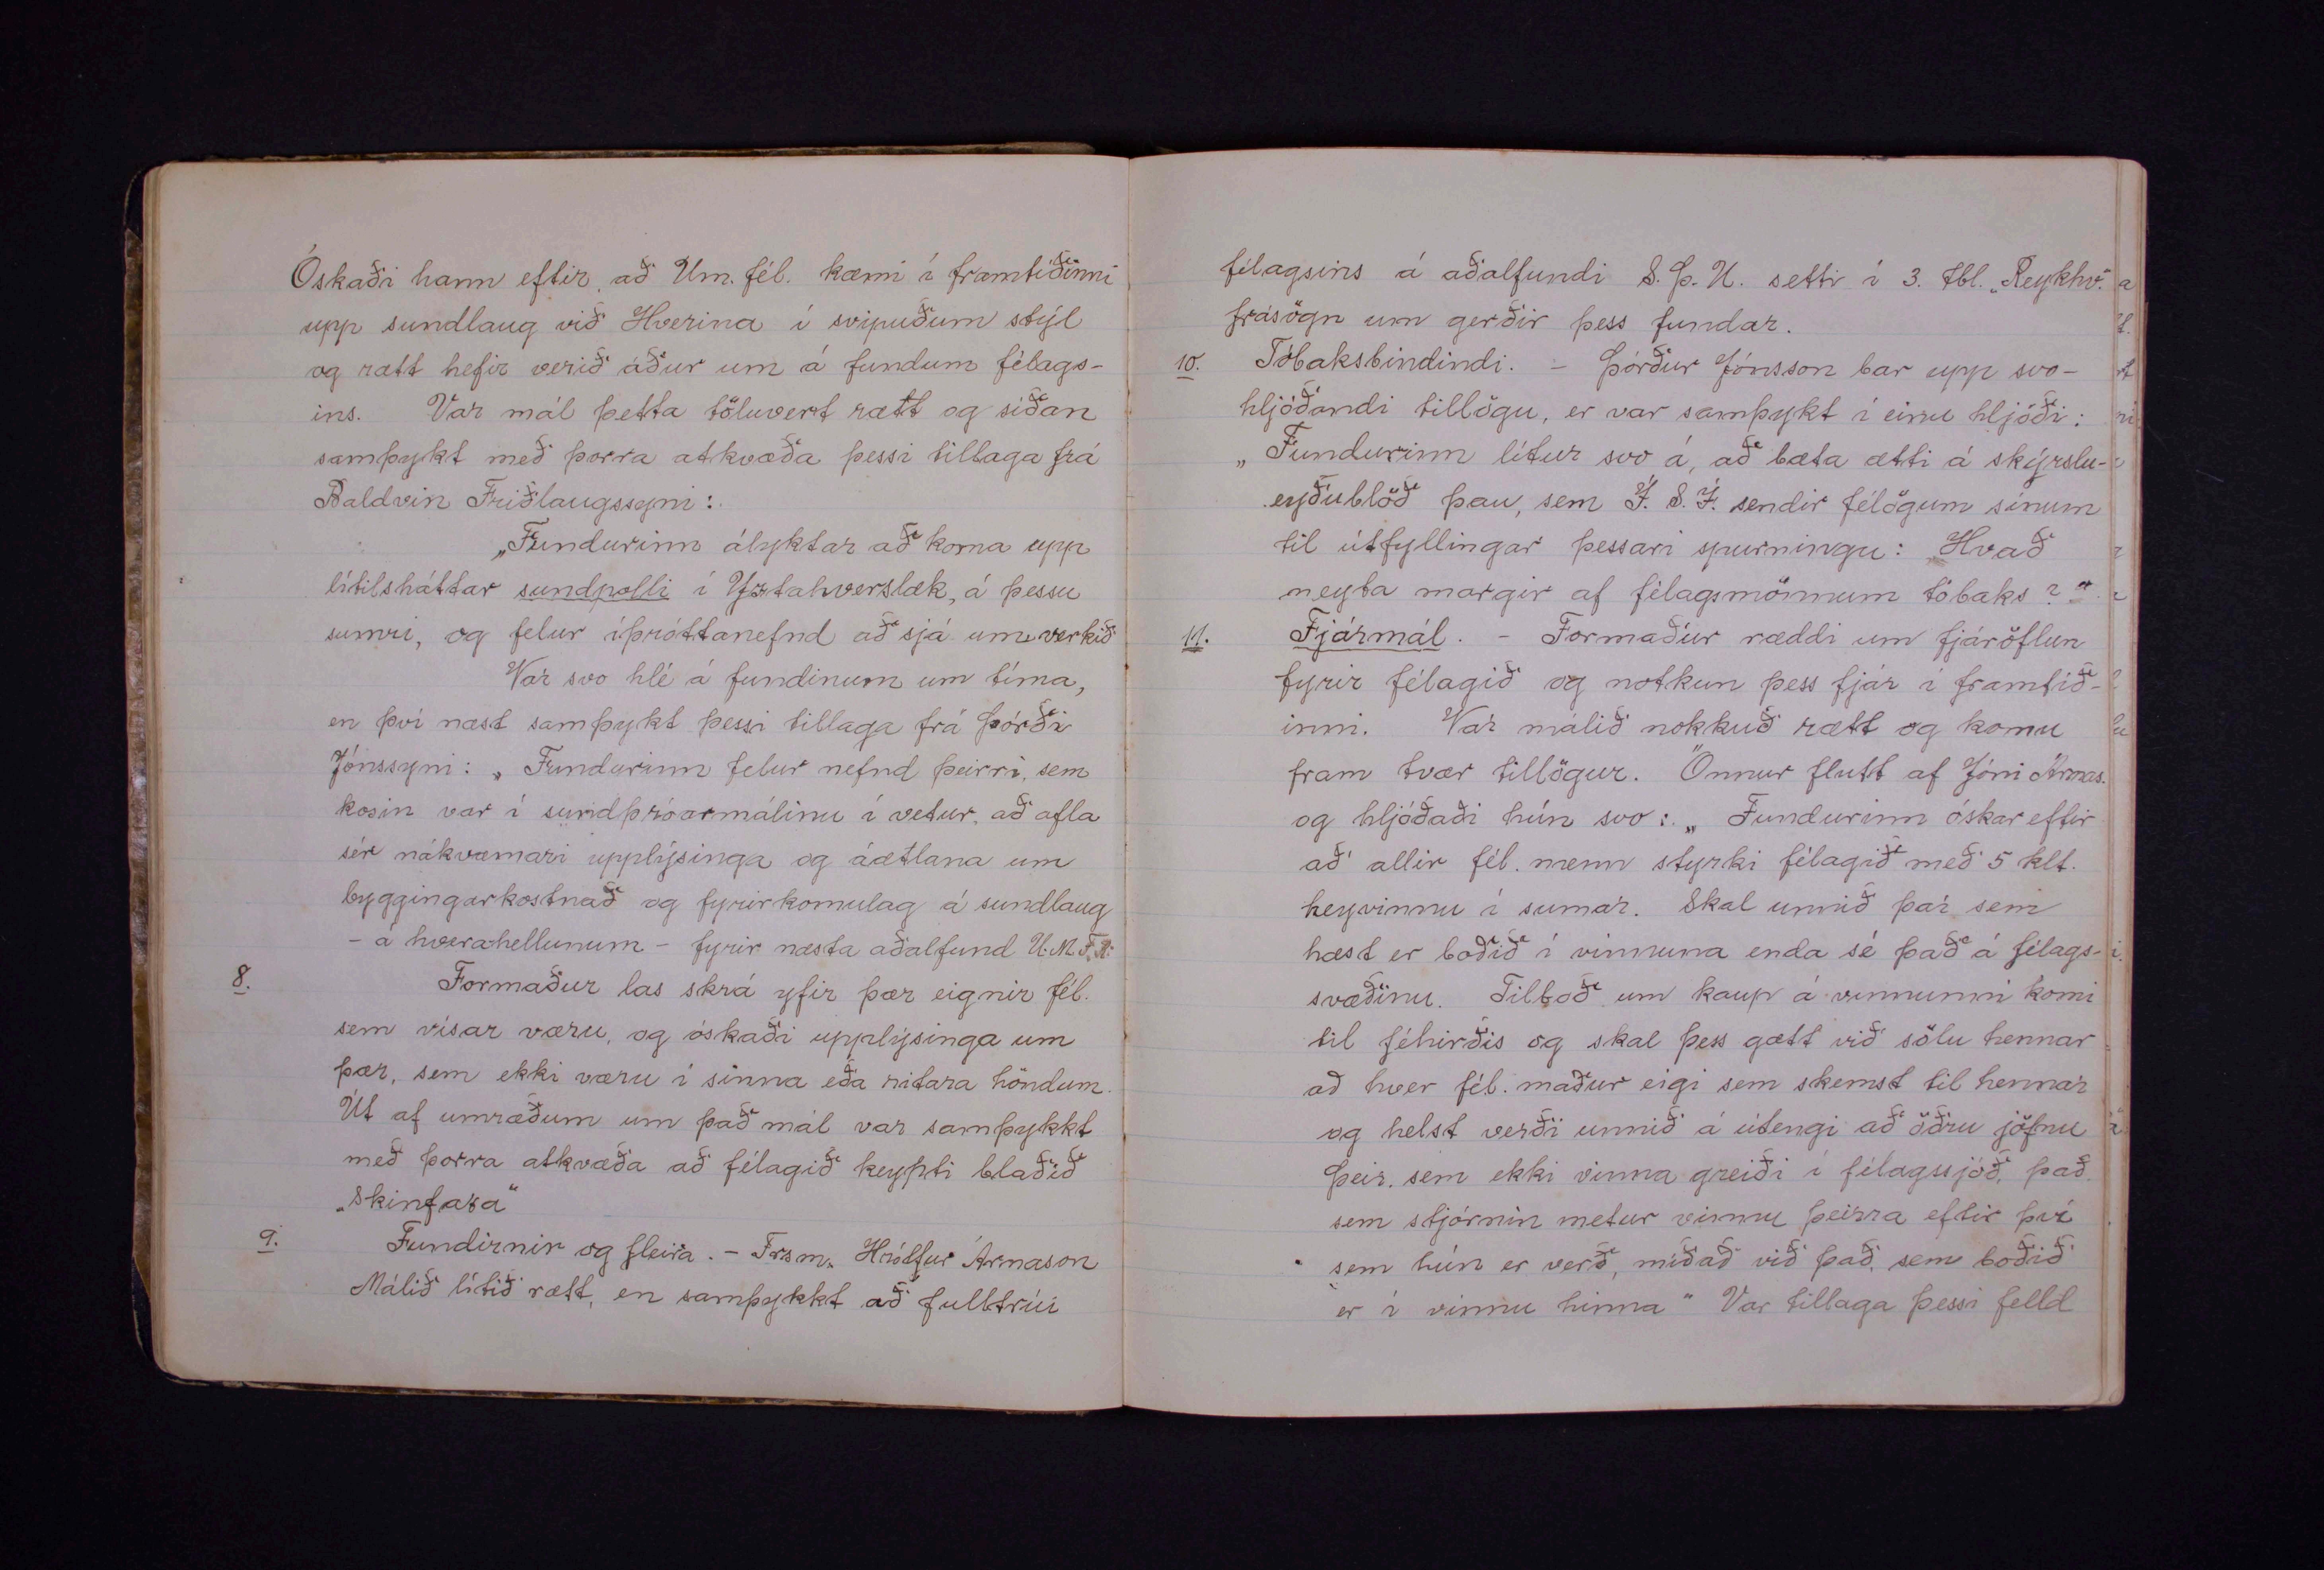 Óskaði hann eftir, að Um. fél. kæmi í framtíðinni
upp sundlaug við Hverina í svipuðum stýl
og rætt hefir verið áður um á fundum félags-
ins. Var mál þetta töluvert rætt og síðan
samþykt með þorra atkvæða þessi tillaga frá
Baldvin Friðlaugssyni:
„Fundurinn ályktar að koma upp
lítilsháttar sundpolli í Yztahverslæk, á þessu
sumri, og felur íþróttanefnd að sjá um verkið
Var svo hlé á fundinum um tíma,
en því næst samþykt þessi tillaga frá Þórði
Jónssyni: „Fundurinn felur nefnd þeirri, sem
kosin var í sundþróarmálinu í vetur, að afla
sér nákvæmari upplýsinga og áætlana um
byggingarkostnað og fyrirkomulag á sundlaug
- á hverahellunum - fyrir næsta aðalfund U.M.F.R.
8. Formaður las skrá yfir þær eignir fél.
sem vísar væru, og óskaði upplýsinga um
þær, sem ekki væru í sinna eða ritara höndum.
Út af umræðum um það mál var samþykkt
með þorra atkvæða að félagið keypti blaðið
„Skinfaxa“
9. Fundirnir og fleira. - Frsm. Hrólfur Árnason
Málið lítið rætt, en samþykkt að fulltrúi
félagsins á aðalfundi S.Þ.U. setti í 3. tbl. „Reykhv.“
frásögn um gerðir þess fundar.
10. Tóbaksbindindi. - Þórður Jónsson bar upp svo-
hljóðandi tillögu, er var samþykt í einu hljóði:
„Fundurinn lítur svo á, að bæta ætti á skýrslu-
eyðublöð þau, sem Í.S.Í. sendir félögum sínum
til útfyllingar þessari spurningu: Hvað
neyta margir af félagsmönnum tóbaks?“
11. Fjármál. - Formaður ræddi um fjáröflun
fyrir félagið og notkun þess fjár í framtíð-
inni. Var málið nokkuð rætt og komu
fram tvær tillögur. Önnur flutt af Jóni Árnas.
og hljóðaði hún svo: „Fundurinn óskar eftir
að allir fél. menn styrki félagið með 5 klt.
heyvinnu í sumar. Skal unnið þar sem
hæst er boðið í vinnuna enda sé það á félags-
svæðinu. Tilboð um kaup á vinnunni komi
til féhirðis og skal þess gætt við sölu hennar
að hver fél. maður eigi sem skemst til hennar
og helst verði unnið á útengi að öðru jöfnu
Þeir, sem ekki vinna greiði í félagssjóð, það
sem stjórnin metur vinnu þeirra eftir því
sem hún er verð, miðað við það, sem boðið
er í vinnu hinna“ Var tillaga þessi felld